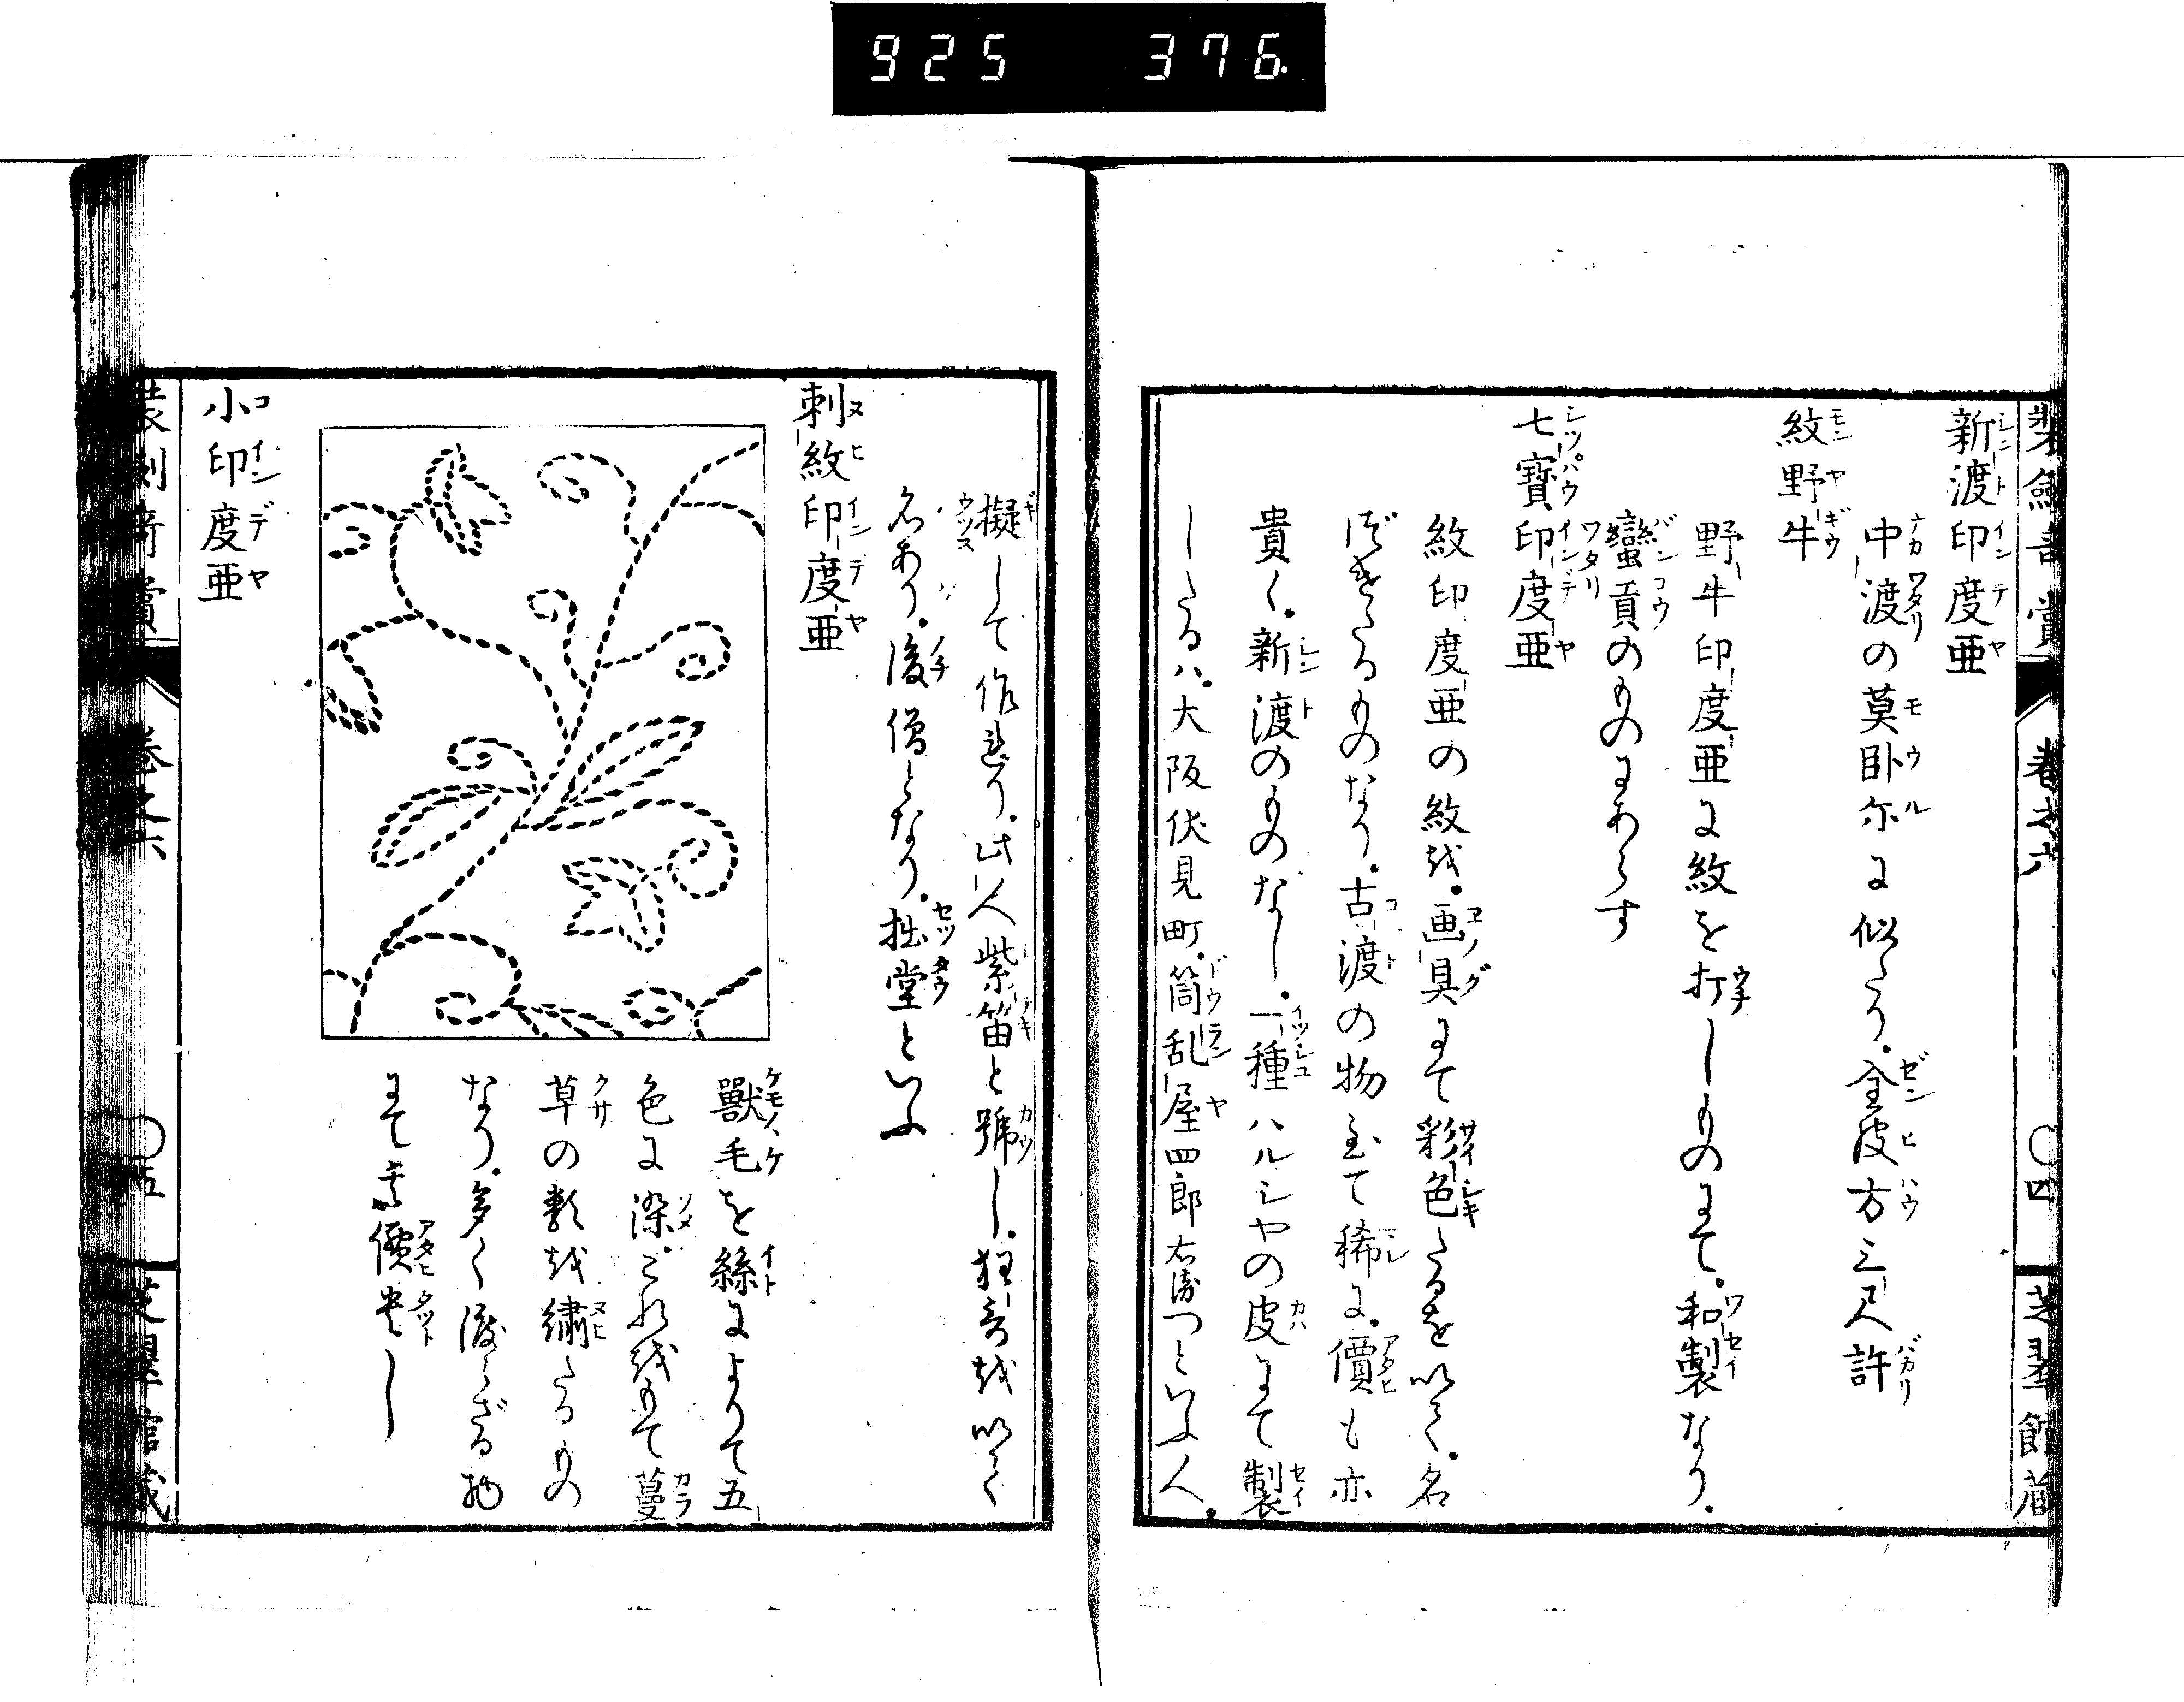 925 376
装劔奇賞 巻之六 〇四 芝翠館蔵
新渡印度亜
中渡の莫卧尓に似たり。全皮方三尺許
紋野牛
野牛印度亜に紋を打しものにて。和製なり。
蠻貢のものにあらす
七寳印度亜
紋印度亜の紋を。画具にて彩色たるを以て。名
づきたるものなり。古渡の物至て稀に。價も亦
貴く。新渡のものなし。一種ハルシヤの皮にて製
したるハ。大阪伏見町。筒乱屋四郎右衛つといふ人。
擬して作れり。此人紫笛と號し。狂哥を以て
名あり。後僧となり。拙堂といふ
刺紋印度亜
獸毛を絲によりて五
色に染。これをもて蔓
草の類を繡たるもの
なり。多く渡らざる物
にて 價貴し
小印度亜
装劔奇賞 巻之六 〇五 芝翠館蔵